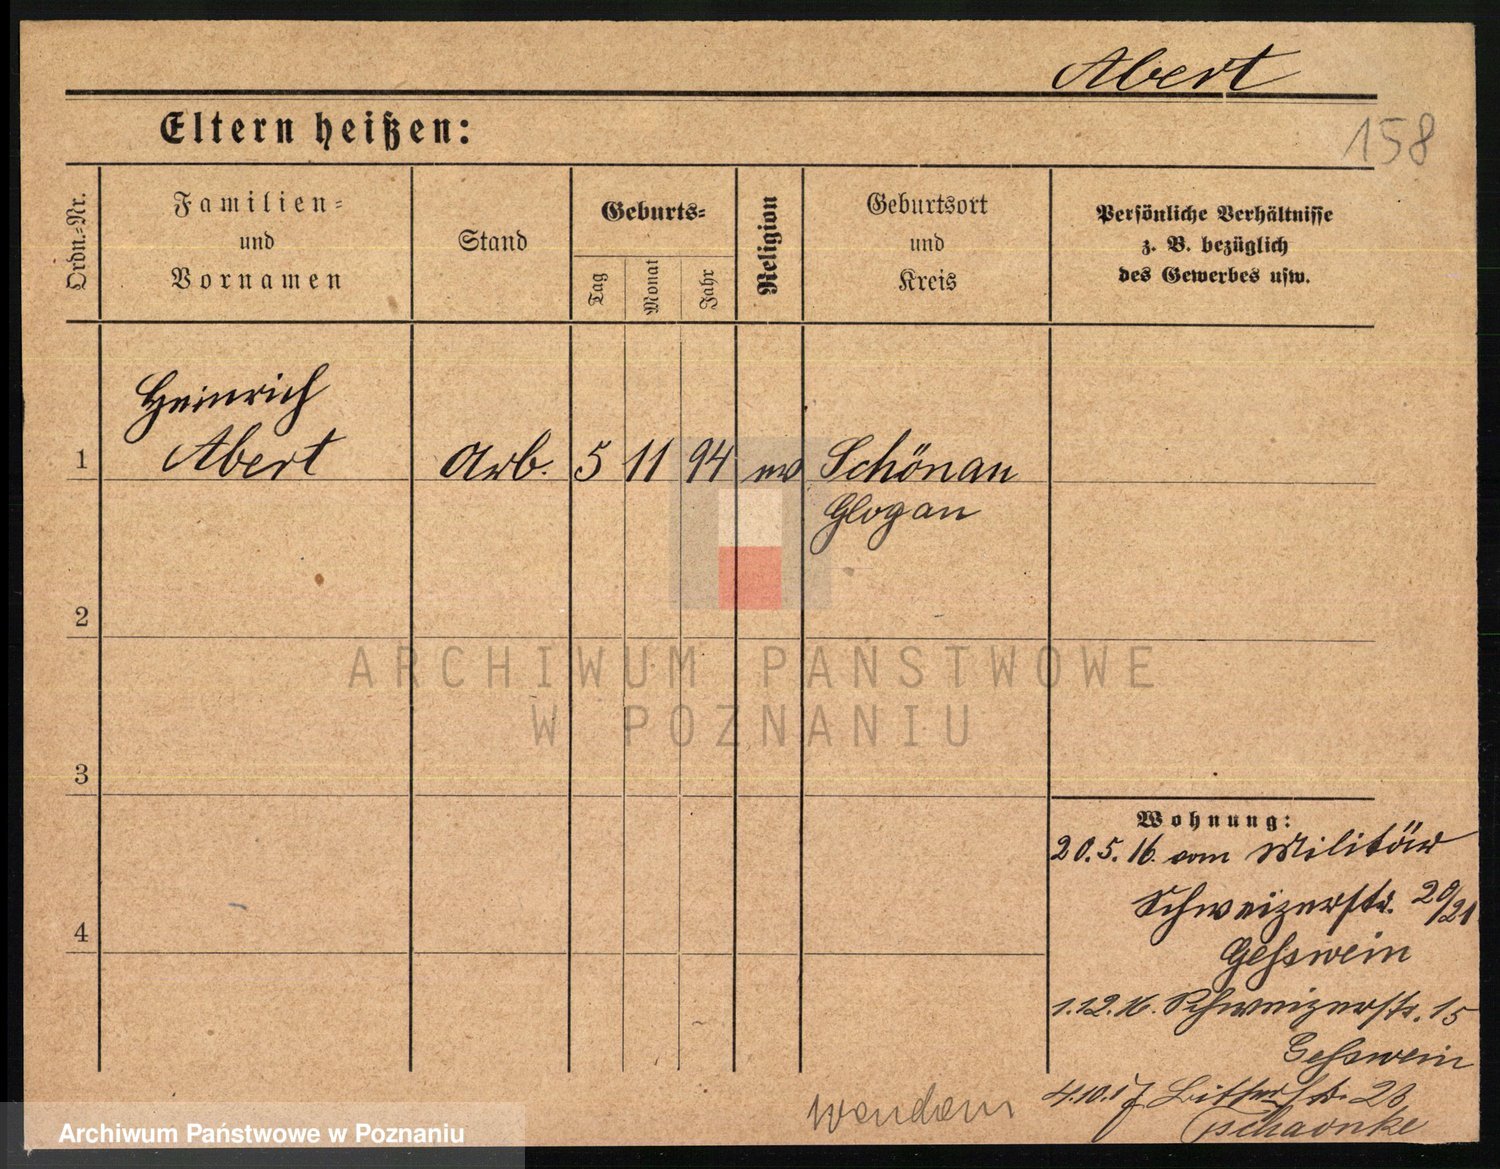 Abert
158
Eltern heißen:
Ordn.-Nr.
Familien-
und
Vornamen
Stand
Geburts-
Tag
Monat
Jahr
Religion
Geburtsort
und
Kreis
Persönliche Verhältnisse
z. B. bezüglich
des Gewerbes usw.
Heinrich
1 Abert Arb. 5 11 94 ev Schönau
Glogau
2
3
4
ARCHIWUM PAŃSTWOWE
W POZNANIU
Wohnung:
20.5.16. vom Militär
Schweizerstr. 20/21
Gesswein
1.12.16. Schweizerstr. 15
Gesswein
4.10.17 Bitterstr. 23
Tschaonke
wenden
Archiwum Państwowe w Poznaniu